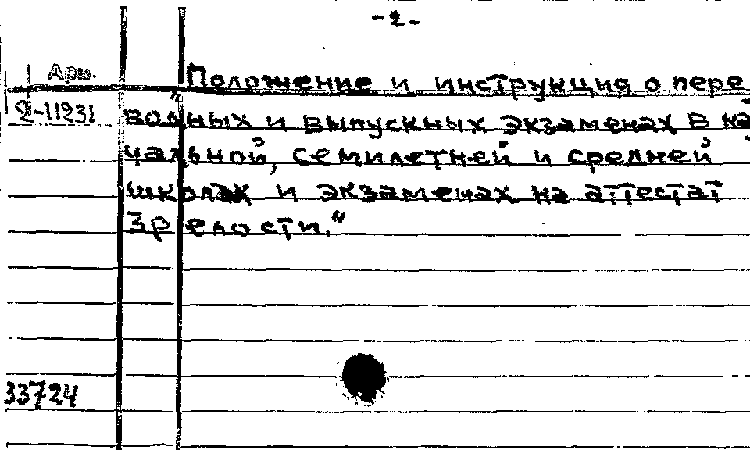 -2-
Арш.
„Положение и инструкция о пере
Я-11231
водных и выпускных экзаменах в на
чальной, семилетней и средней
школах и экзаменах на аттестат
зрелости."
33724